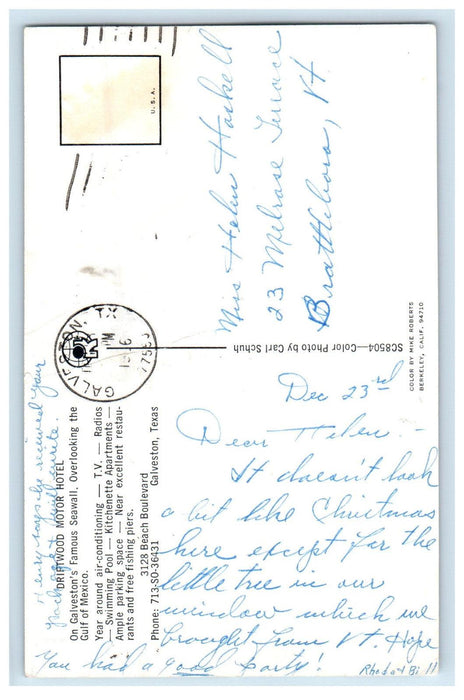 DRIFTWOOD MOTOR HOTEL
On Galveston's Famous Seawall. Overlooking the
Gulf of Mexico.
Year around air-conditioning — T.V. — Radios
— Swimming Pool — Kitchenette Apartments —
Ample parking space — Near excellent restau-
rants and free fishing piers.
3128 Beach Boulevard
Phone: 713-SO-36431 Galveston, Texas
Dec 23rd
Dear Helen -
It doesn't look
a bit like Christmas
here except for the
little tree in our
window which we
brought from Vt. Hope
you had a good party!
Rhoda + Bill
Henry says he received your
package & will write.
SC8504—Color Photo by Carl Schuh
COLOR BY MIKE ROBERTS
BERKELEY, CALIF. 94710
U.S.A.
GALVESTON, TX
PM
775
Miss Helen Haskell
23 Melrose Terrace
Brattleboro, Vt